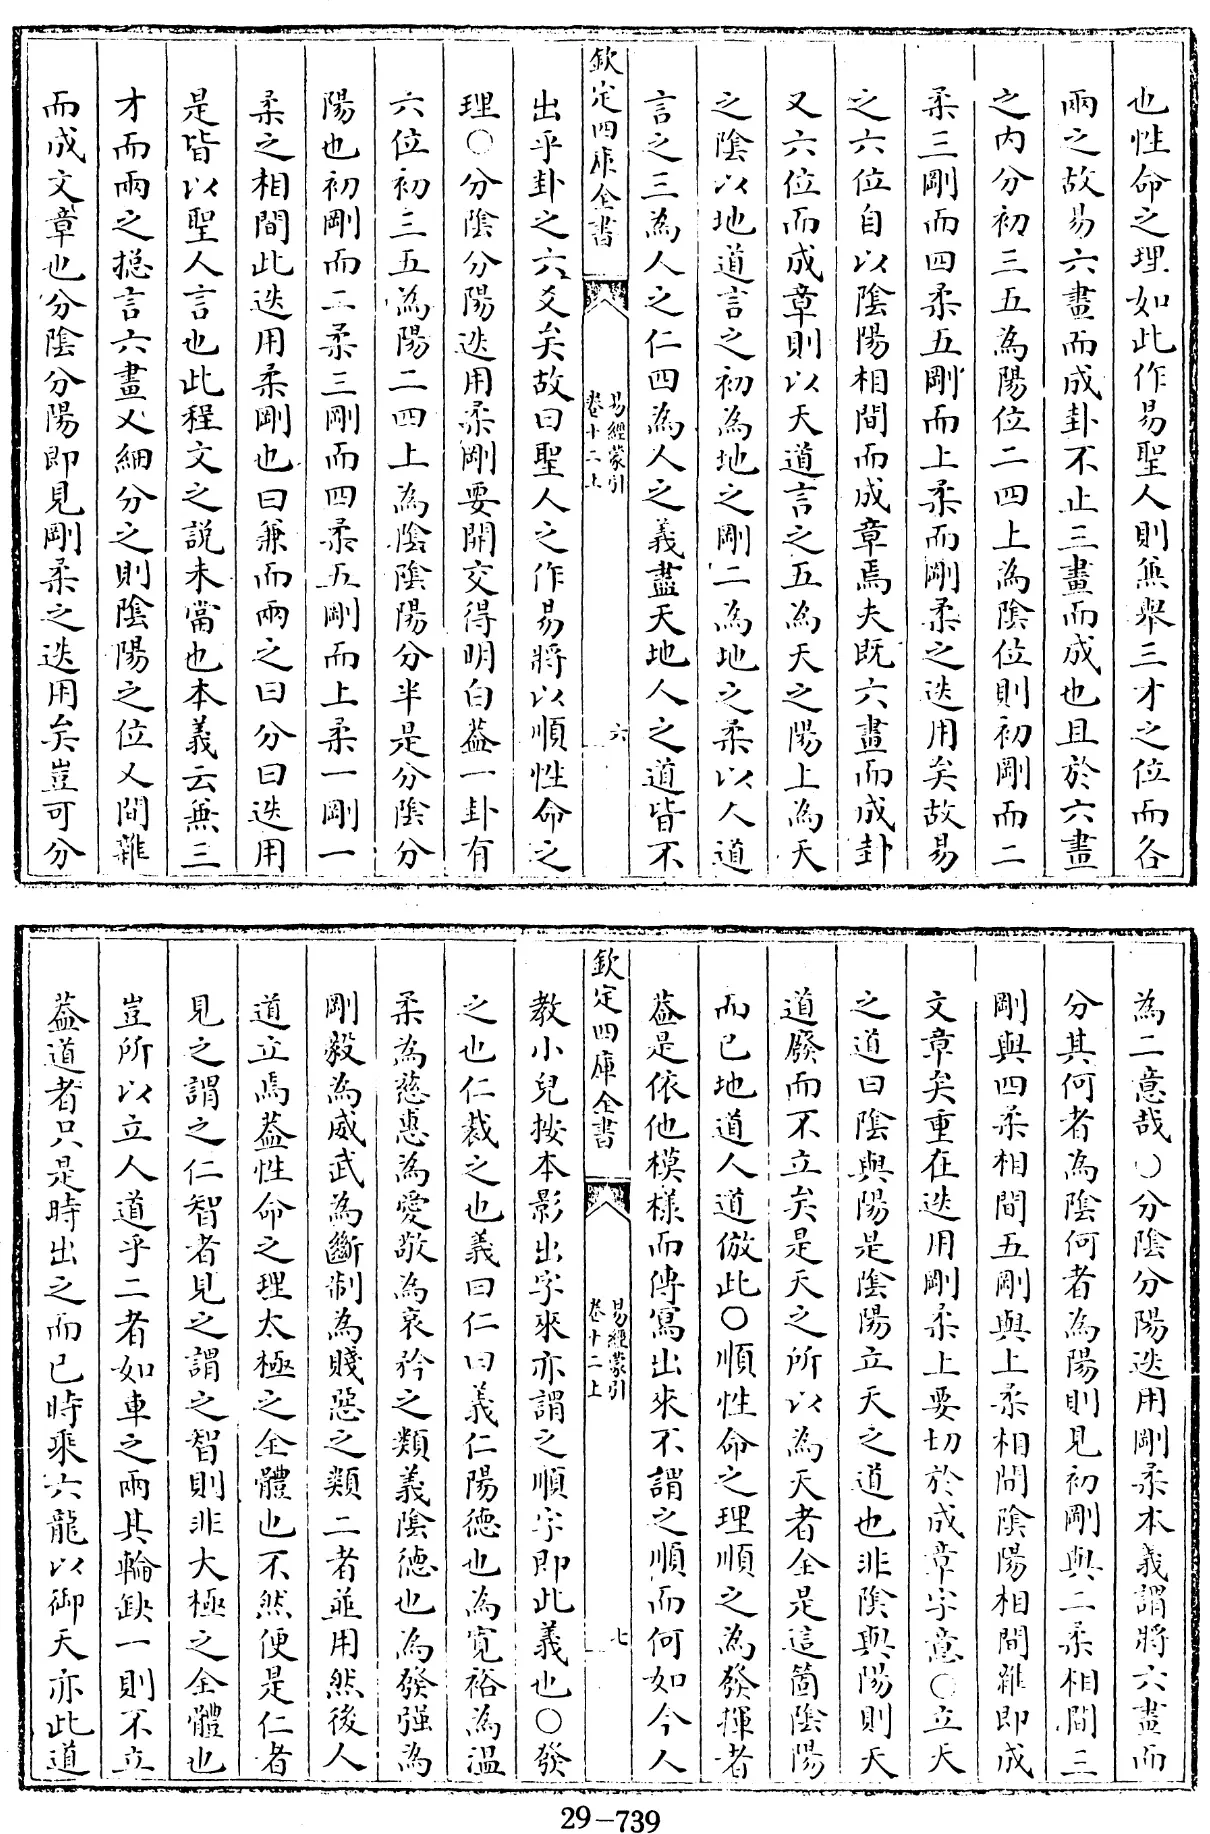 也性命之理如此作易聖人則兼舉三才之位而各
兩之故易六畫而成卦不止三畫而成也且於六畫
之内分初三五為陽位二四上為陰位則初剛而二
柔三剛而四柔五剛而上柔而剛柔之迭用矣故易
之六位自以陰陽相間而成章焉夫既六畫而成卦
又六位而成章則以天道言之五為天之陽上為天
之陰以地道言之初為地之剛二為地之柔以人道
言之三為人之仁四為人之義盡天地人之道皆不
欽定四庫全書
易經蒙引
卷十二上
六
出乎卦之六爻矣故曰聖人之作易將以順性命之
理○分陰分陽迭用柔剛要開交得明白葢一卦有
六位初三五為陽二四上為陰陰陽分半是分陰分
陽也初剛而二柔三剛而四柔五剛而上柔一剛一
柔之相間此迭用柔剛也曰兼而兩之曰分曰迭用
是皆以聖人言也此程文之説未當也本義云兼三
才而兩之捴言六畫又細分之則陰陽之位又間雜
而成文章也分陰分陽即見剛柔之迭用矣豈可分
為二意哉○分陰分陽迭用剛柔本義謂將六畫而
分其何者為陰何者為陽則見初剛與二柔相間三
剛與四柔相間五剛與上柔相間陰陽相間雜即成
文章矣重在迭用剛柔上要切於成章字意○立天
之道曰陰與陽是陰陽立天之道也非陰與陽則天
道廢而不立矣是天之所以為天者全是這箇陰陽
而已地道人道倣此○順性命之理順之為發揮者
葢是依他模樣而傳寫出來不謂之順而何如今人
欽定四庫全書
易經蒙引
卷十二上
七
教小兒按本影出字來亦謂之順字即此義也○發
之也仁裁之也義曰仁曰義仁陽德也為寛裕為溫
柔為慈惠為愛敬為哀矜之類義陰德也為發强為
剛毅為威武為斷制為賤惡之類二者並用然後人
道立焉葢性命之理太極之全體也不然便是仁者
見之謂之仁智者見之謂之智則非大極之全體也
豈所以立人道乎二者如車之兩其輪缺一則不立
葢道者只是時出之而已時乘六龍以御天亦此道
29-739